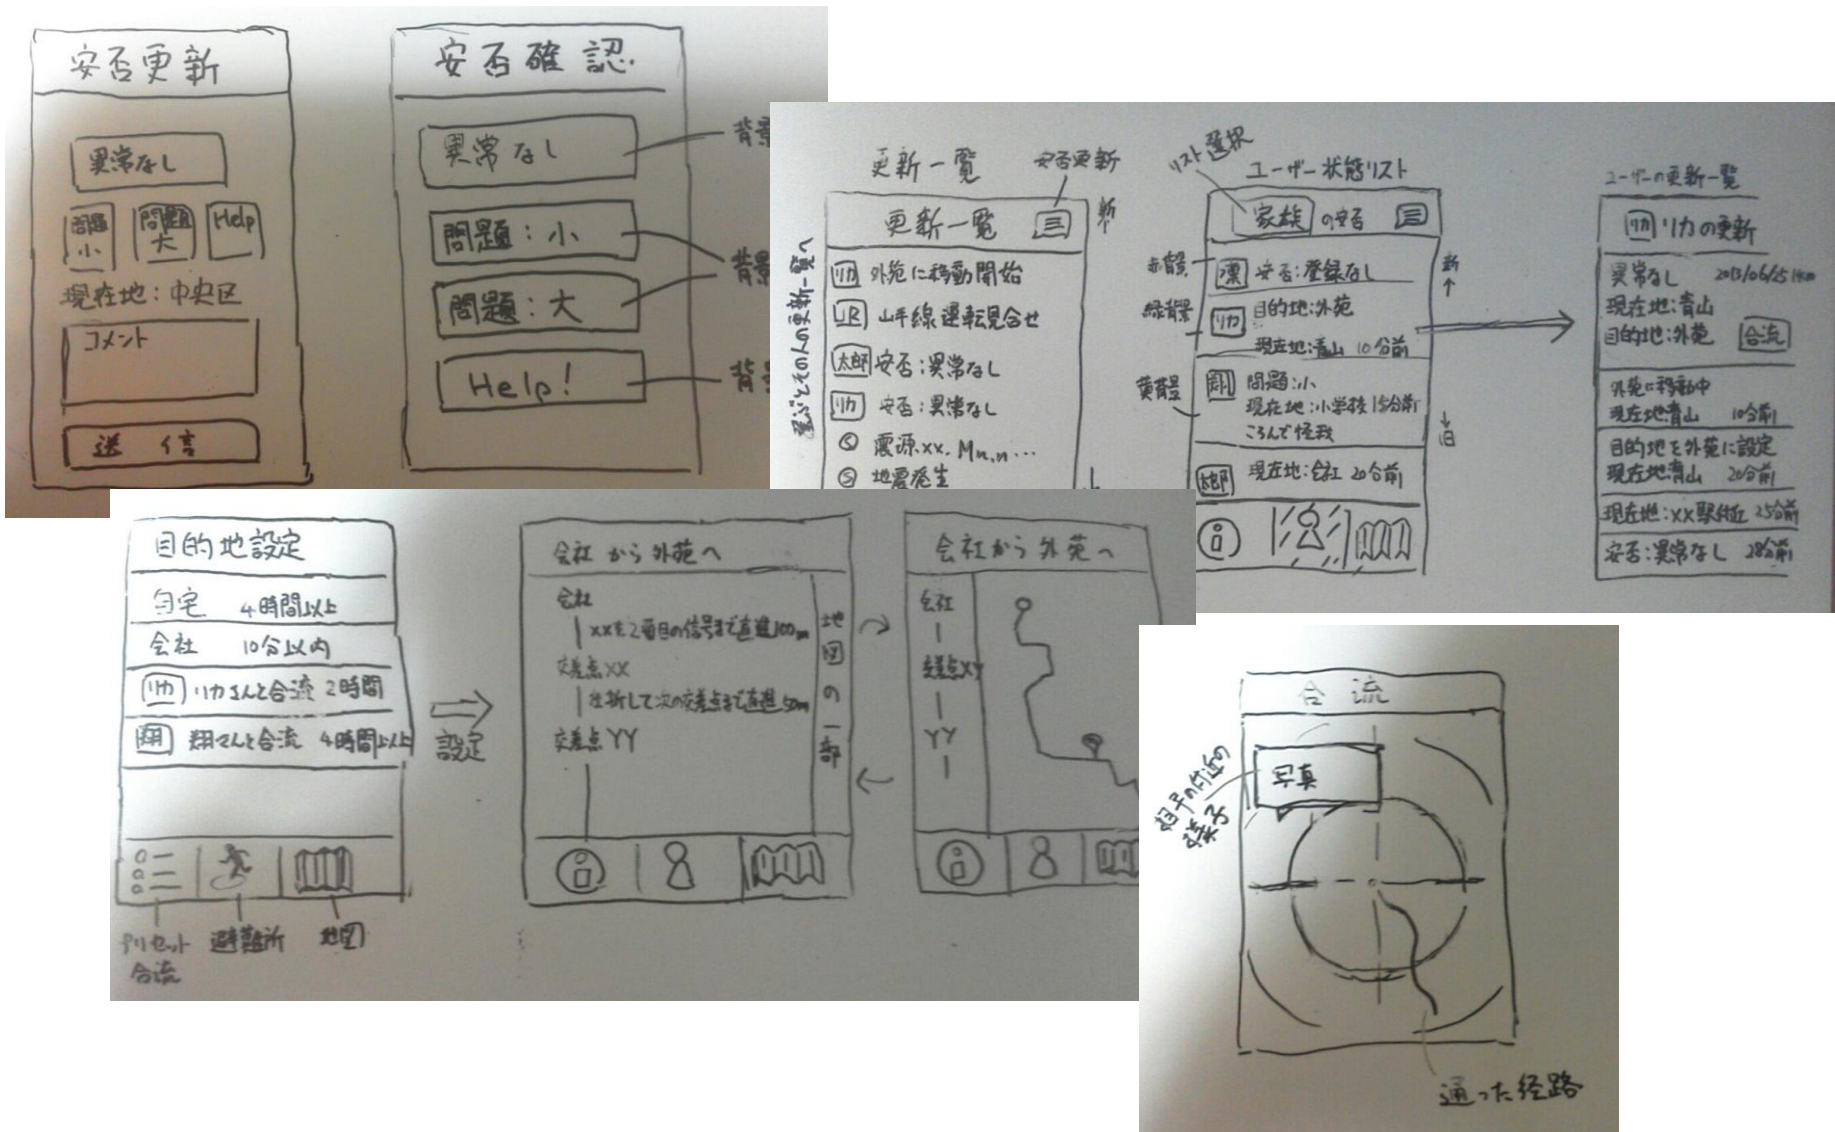 安否更新
異常なし
問題
小
問題
大
Help
現在地:中央区
コメント
送 信
安否確認
異常なし
問題:小
問題:大
Help!
背景
背景
背景
更新一覧
安否更新
更新一覧
新
選ぶとその人の更新一覧へ
リカ 外苑に移動開始
JR 山手線運転見合せ
太郎 安否:異常なし
リカ 安否:異常なし
S 震源xx. Mn.n…
S 地震発生
リスト選択
ユーザー状態リスト
家族 の安否
赤背景
緑背景
黄背景
安否:登録なし
リカ 目的地:外苑
現在地:青山 10分前
問題:小
現在地:小学校 15分前
ころんで怪我
太郎 現在地:会社 20分前
新
旧
ユーザーの更新一覧
リカ リカの更新
異常なし 2013/06/25
現在地:青山
目的地:外苑 合流
外苑に移動中
現在地青山 10分前
目的地を外苑に設定
現在地青山 20分前
現在地:××駅付近 25分前
安否:異常なし 28分前
目的地設定
自宅 4時間以上
会社 10分以内
リカ リカさんと合流 2時間
翔 翔さんと合流 4時間以上
プリセット
合流
避難所
地図
設定
会社から外苑へ
会社
xxを2番目の信号まで直進100m
交差点XX
左折して次の交差点まで直進50m
交差点YY
地図の一部
会社から外苑へ
会社
交差点XY
YY
合流
写真
相子の付近の
様子
通った経路